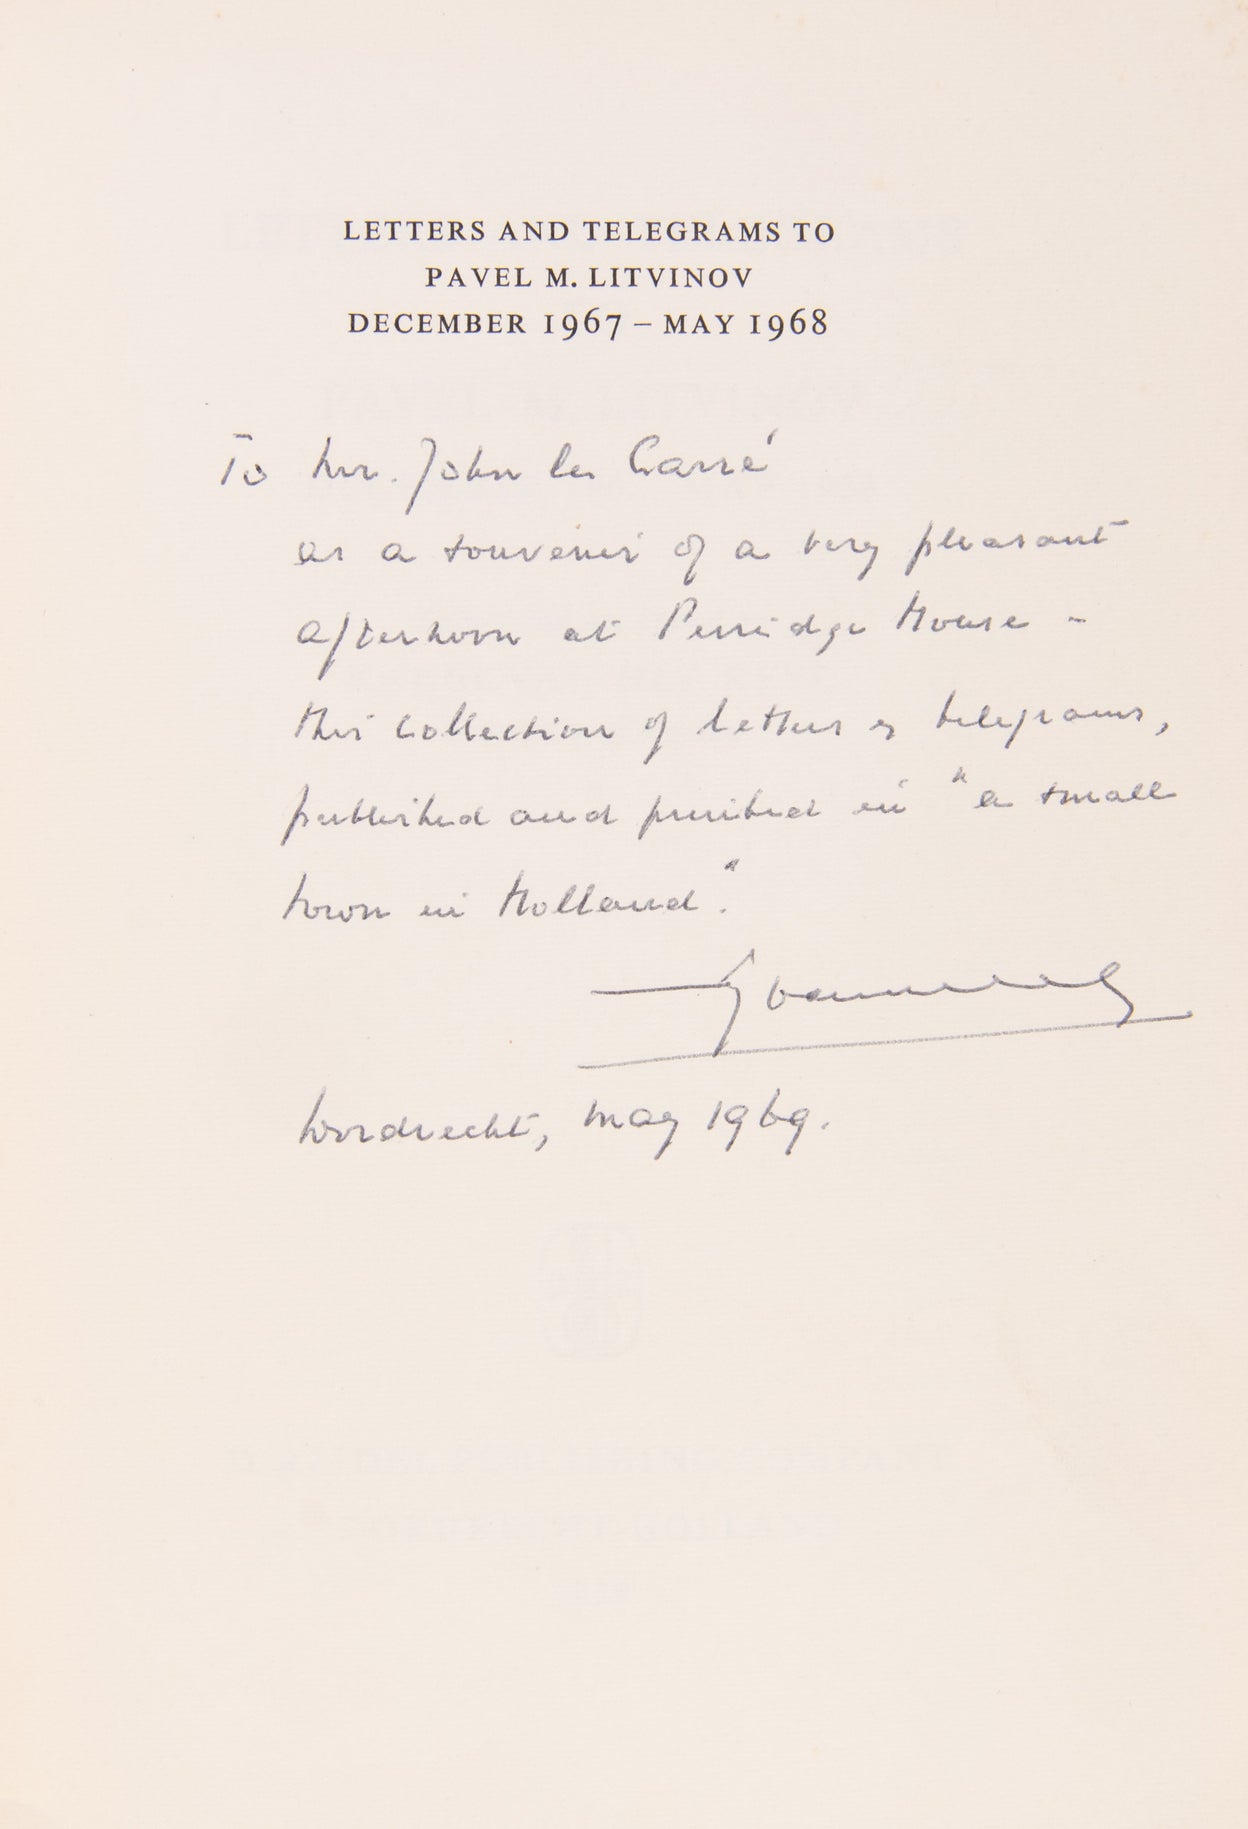 LETTERS AND TELEGRAMS TO
PAVEL M. LITVINOV
DECEMBER 1967 – MAY 1968
To Mr. John le Carré
as a souvenir of a very pleasant
afternoon at Perridge House -
this collection of letters & telegrams,
published and printed in "a small
town in Holland".
Dordrecht, May 1969.